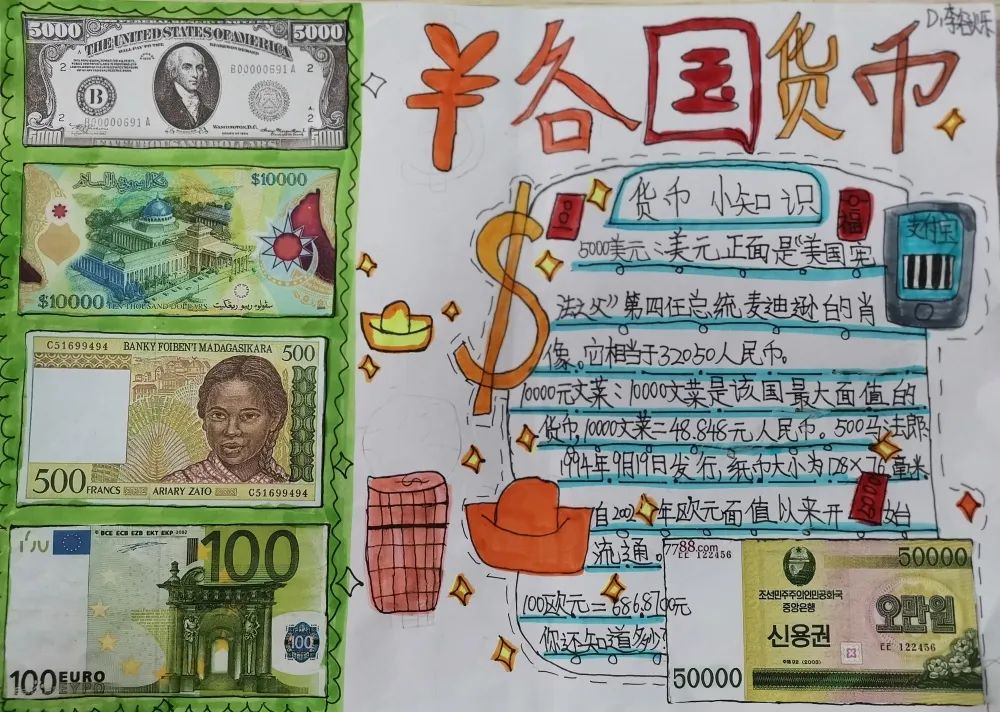 5000
FEDERAL RESERVE NOTE
5000
THE UNITED STATES OF AMERICA
WILL PAY TO THE BEARER ON DEMAND
2
B00000691 A
2
B
2
B00000691 A
2
WASHINGTON, D.C.
5000
FIVE THOUSAND DOLLARS
5000
$10000
$10000
TEN THOUSAND DOLLARS
C51699494
BANKY FOIBEN'I MADAGASIKARA
500
500
FRANCS
ARIARY ZATO
C51699494
BCE ECB EZB EKT EKP 2002
100
100
100 EURO
ΕΥΡΩ
¥各国货币
货币小知识
福
支付宝
5000美元:美元正面是“美国宪
法之父”第四任总统麦迪逊的肖
像。它相当于32050人民币。
10000元文莱:10000文莱是该国最大面值的
货币,10000文莱=48.848元人民币。500马法郎
1994年9月19日发行,纸币大小为128×76毫米
自2002年欧元面值以来开始
流通。
100欧元=686.8700元
你还知道多少?
7788.com
ㄷㄷ 122456
50000
조선민주주의인민공화국
중앙은행
오만원
신용권
ㄷㄷ 122456
주체92 (2003)
50000